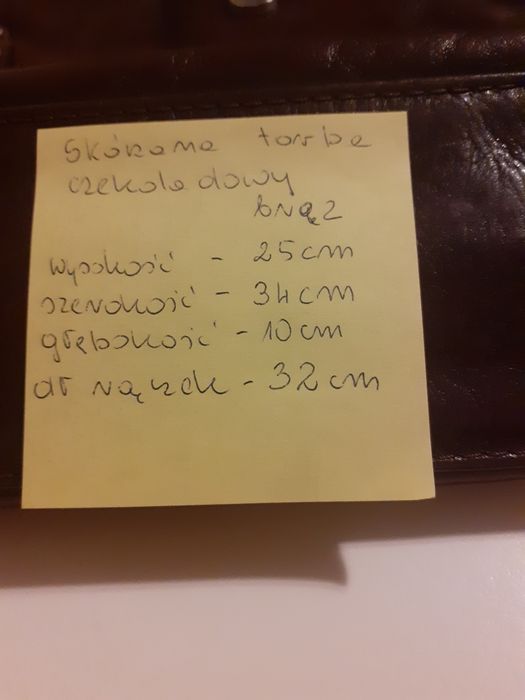 Skórzana torba
czekoladowy
brąz
wysokość - 25cm
szerokość - 34cm
głębokość - 10cm
dł rączek - 32cm